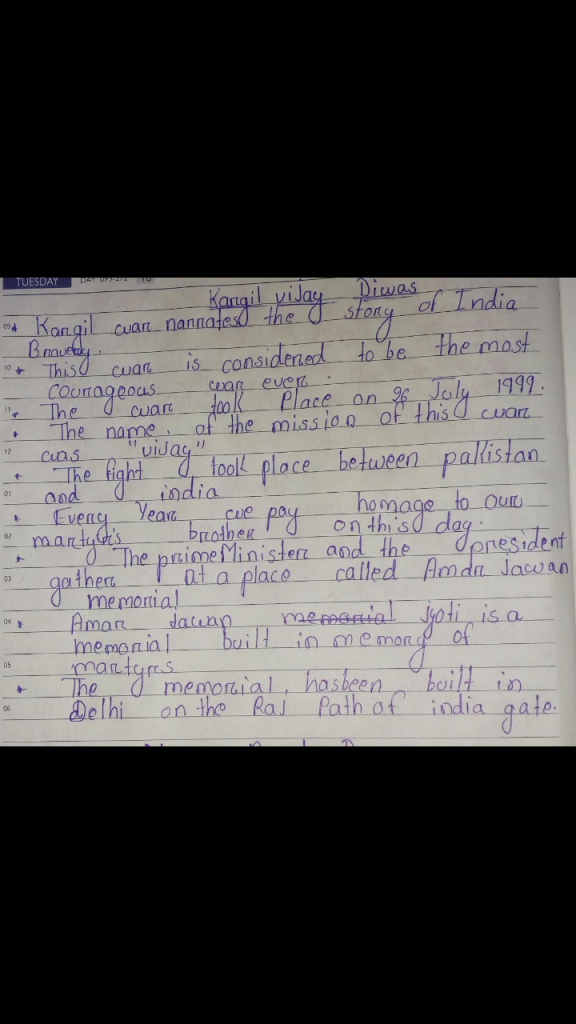 TUESDAY
Kargil vijay Diwas
09 * Kargil war narrates the story of India
Bravery.
10 * This war is considered to be the most
courageous war ever.
11 * The war took Place on 26 July 1999.
* The name of the mission of this war
12 was "vijay"
* The fight took place between pakistan
01 and india
* Every Year we pay homage to our
02 martyr's brother on this day.
* The prime Minister and the president
03 gather at a place called Amar Jawan
memorial
04 * Amar Jawan memorial Jyoti is a
memorial built in memory of
05 martyrs
* The memorial, hasbeen built in
06 Delhi on the Raj Path of india gate.